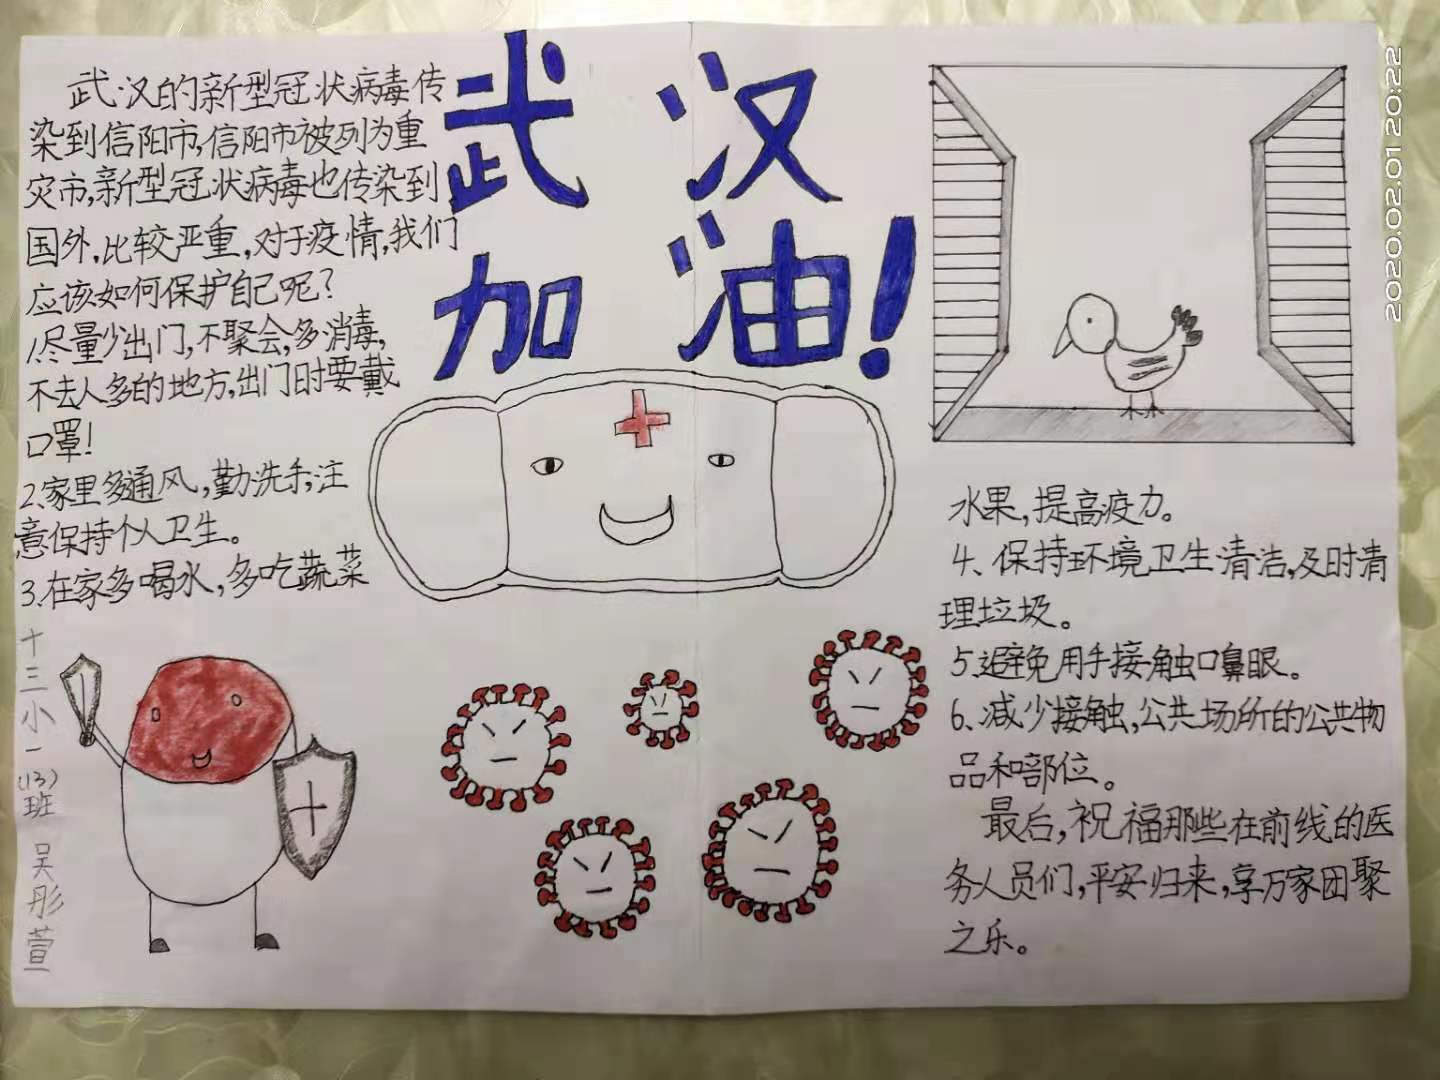 武汉的新型冠状病毒传
染到信阳市,信阳市被列为重
灾市,新型冠状病毒也传染到
国外,比较严重,对于疫情,我们
应该如何保护自己呢?
1.尽量少出门,不聚会,多消毒,
不去人多的地方,出门时要戴
口罩!
2、家里多通风,勤洗手,注
意保持个人卫生。
3.在家多喝水,多吃蔬菜
武汉
加油!
水果,提高疫力。
4、保持环境卫生清洁,及时清
理垃圾。
5.避免用手接触口鼻眼。
6、减少接触,公共场所的公共物
品和部位。
最后,祝福那些在前线的医
务人员们,平安归来,享万家团聚
之乐。
十三小一(13)班 吴彤萱
2020.02.01 20:22